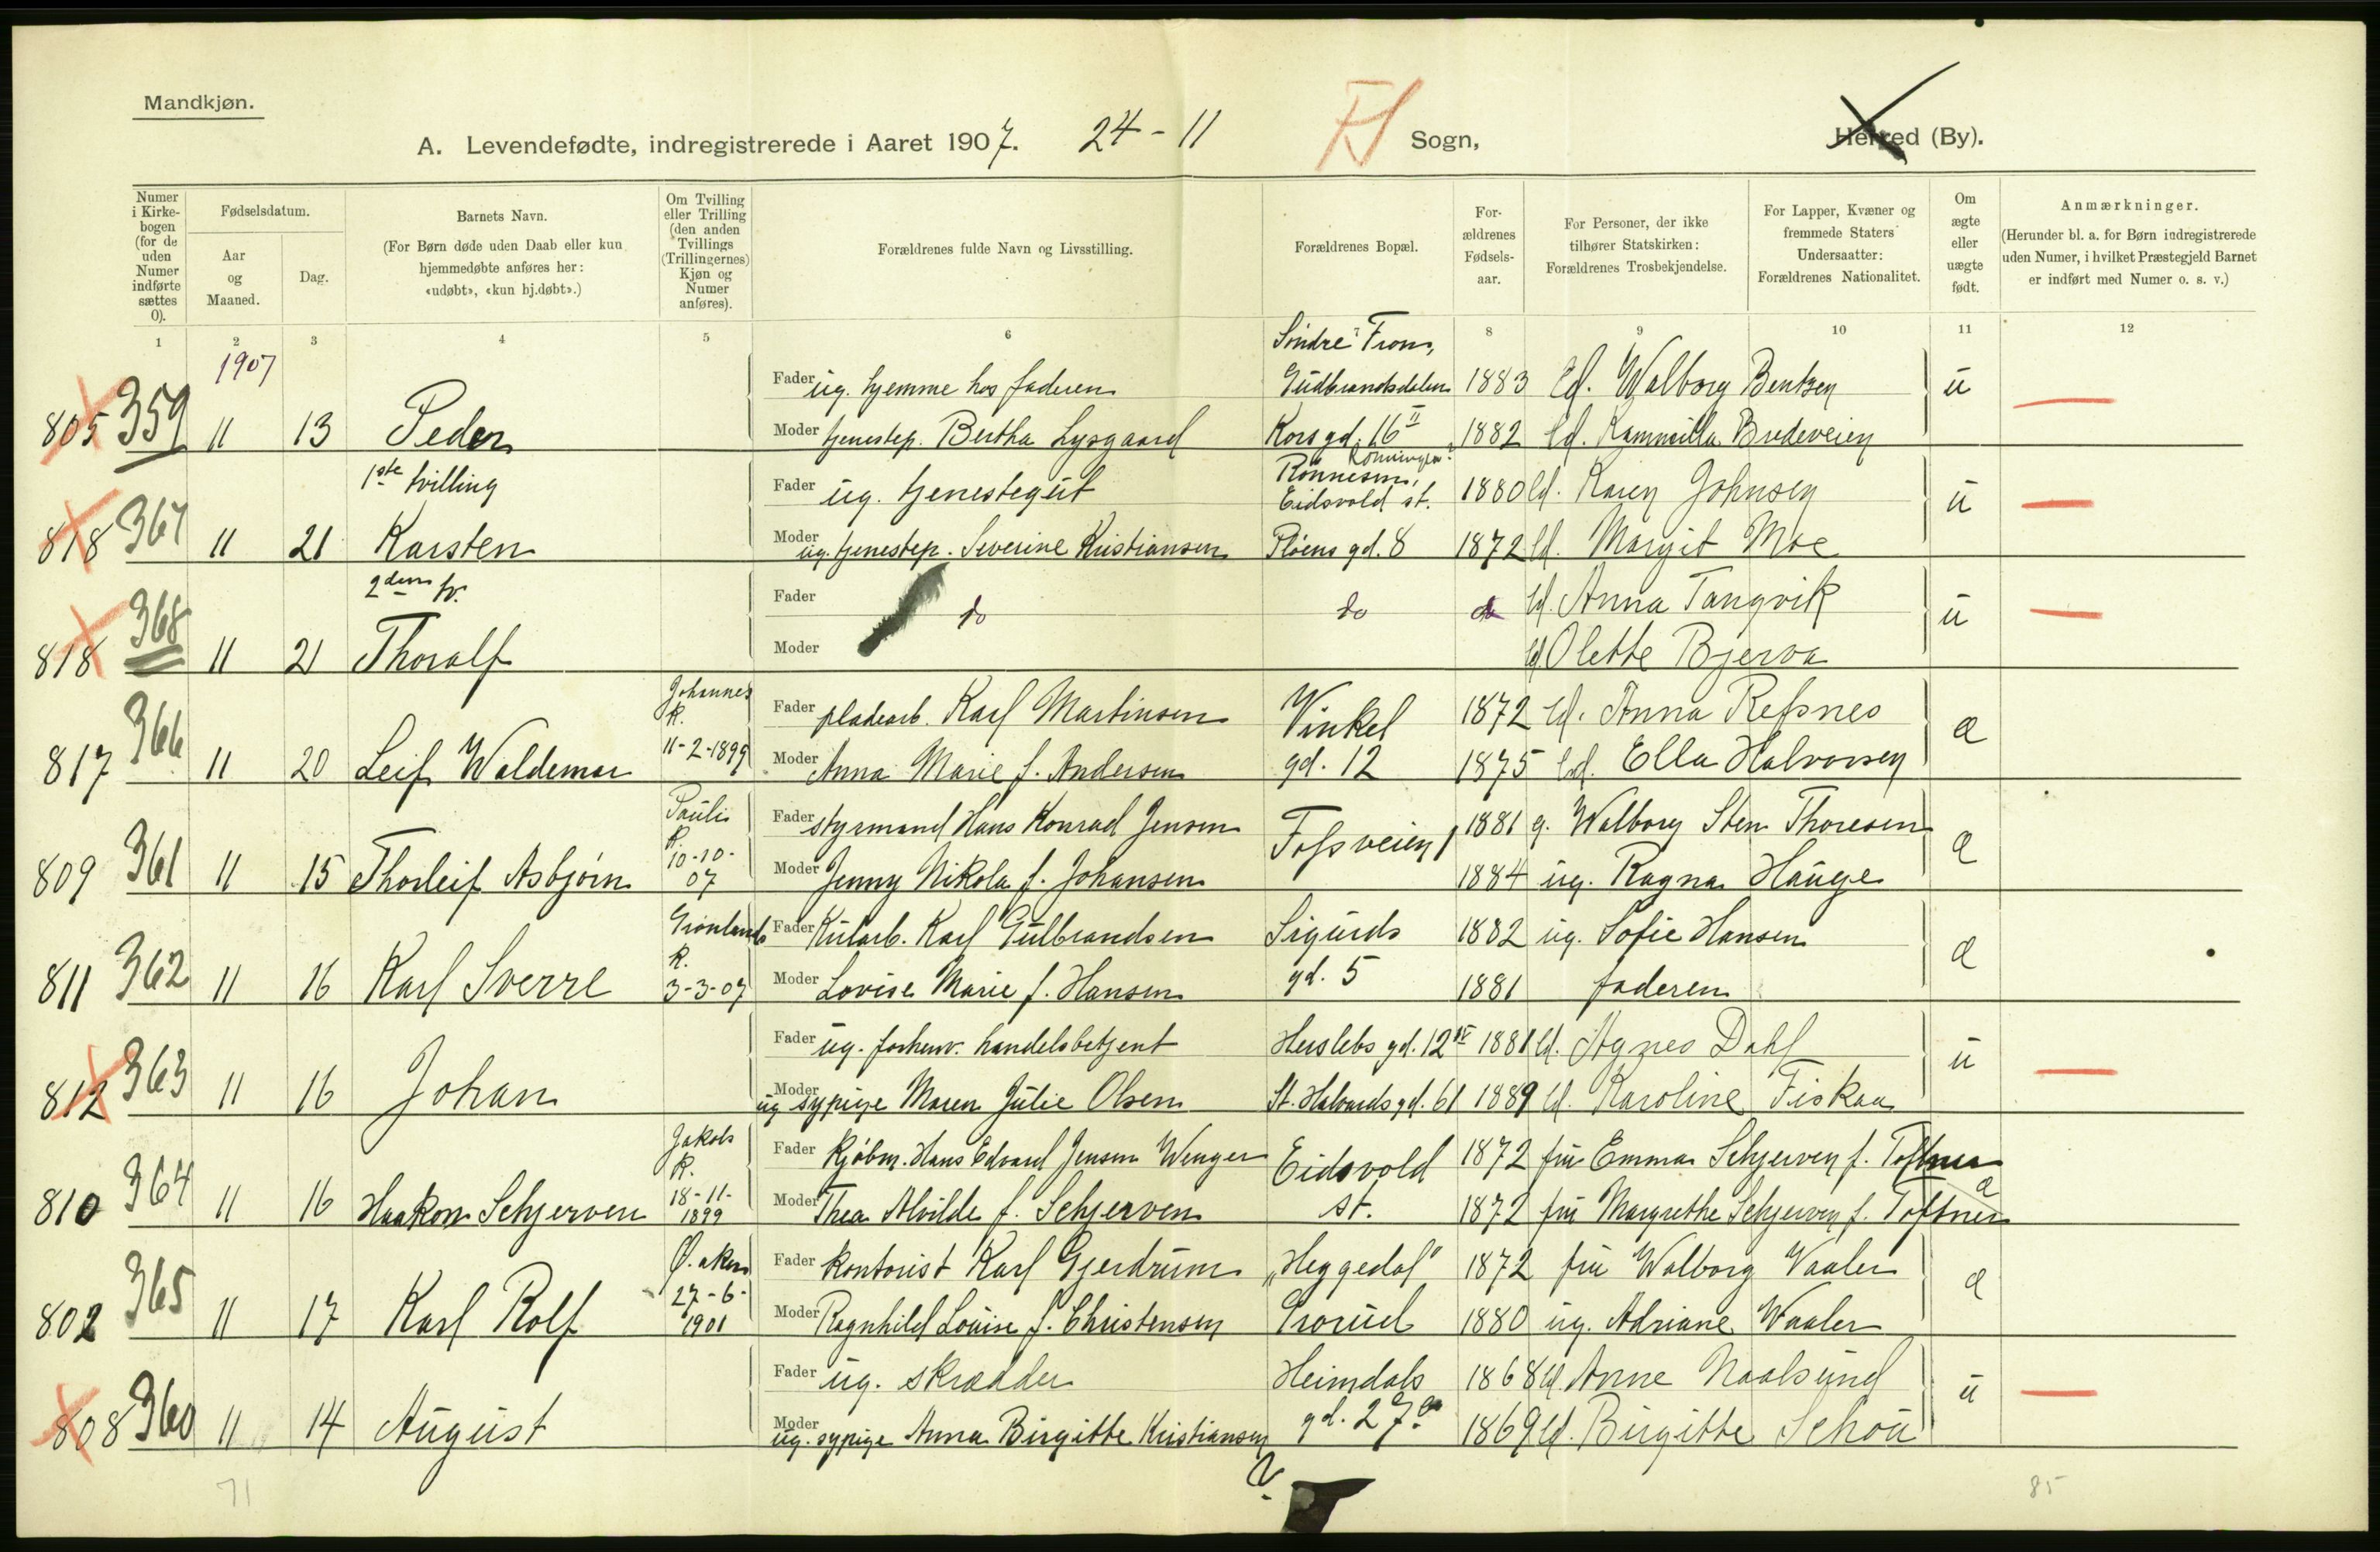 Mandkjøn.
A. Levendefødte, indregistrerede i Aaret 1907. 24-11 Fl Sogn, Herred (By).
Numer i Kirke-bogen (for de uden Numer indførte sættes 0).
Fødselsdatum.
Aar og Maaned.
Dag.
Barnets Navn.
(For Børn døde uden Daab eller kun hjemmedøbte anføres her: «udøbt», «kun hj.døbt».)
Om Tvilling eller Trilling (den anden Tvillings (Trillingernes) Kjøn og Numer anføres).
Forældrenes fulde Navn og Livsstilling.
Forældrenes Bopæl.
For-ældrenes Fødsels-aar.
For Personer, der ikke tilhører Statskirken: Forældrenes Trosbekjendelse.
For Lapper, Kvæner og fremmede Staters Undersaatter: Forældrenes Nationalitet.
Om ægte eller uægte født.
Anmærkninger.
(Herunder bl. a. for Børn indregistrerede uden Numer, i hvilket Præstegjeld Barnet er indført med Numer o. s. v.)
1 2 3 4 5 6 8 9 10 11 12
1907
Søndre Fron,
Fader ug. hjemme hos faderen Gudbrandsdalen 1883 Ed. Walborg Bentzen u
805 359 11 13 Peder Moder tjenestep. Bertha Lysgaard Kors gd. 16 II 1882 Ed. Kammilla Bredeveien
1ste tvilling Fader ug. tjenestegut Eidsvold st. 1880 Ed. Karen Johnsen u
818 367 11 21 Karsten Moder ug. tjenestep. Severine Kristiansen Pløens gd. 8 1872 Ed. Margit Moe
2den tv. Fader do do do Ed. Anna Tangvik u
818 368 11 21 Thoralf Moder Ed. Olette Bjerva
Johannes K. Fader pladearb. Karl Martinsen Vinkel 1872 Ed. Anna Refsnes æ
817 366 11 20 Leif Waldemar 11-2-1899 Moder Anna Marie f. Andersen gd. 12 1875 Ed. Ella Halvorsen
Pauli K. Fader styrmand Hans Konrad Jensen Fossveien 1 1881 g. Walborg Sten Thoresen æ
809 361 11 15 Thorleif Asbjørn 10-10-07 Moder Jenny Nikola f. Johansen 1884 ug. Ragna Hauge
Grønlands K. Fader Kularb. Karl Gulbrandsen Sigurds 1882 ug. Sofie Hansen æ
811 362 11 16 Karl Sverre 3-3-07 Moder Lovise Marie f. Hansen gd. 5 1881 faderen
Fader ug. forhenv. handelsbetjent Herslebs gd. 12 IV 1881 Ed. Agnes Dahl u
812 363 11 16 Johan Moder ug sypige Maren Julie Olsen St. Halvards gd. 61 1889 Ed. Karoline Fiskaa
Jakobs K. Fader Kjøbm. Hans Edvard Jensen Wenger Eidsvold 1872 fru Emma Schjerven f. Toftner æ
810 364 11 16 Haakon Schjerven 18-11-1899 Moder Thea Alvilde f. Schjerven st. 1872 fru Margrethe Schjerven f. Toftner
Ø. aker Fader kontorist Karl Gjerdrum „Heggedal" 1872 fru Walborg Vaaler æ
802 365 11 17 Karl Rolf 27-6-1901 Moder Ragnhild Louise f. Christensen Grorud 1880 ug. Adriane Waaler
Fader ug. skrædder Heimdals 1868 Ed. Anne Naalsund u
808 360 11 14 August Moder ug. sypige Anna Birgitte Kristiansen gd. 27 1869 Ed. Birgitte Schou
71 85